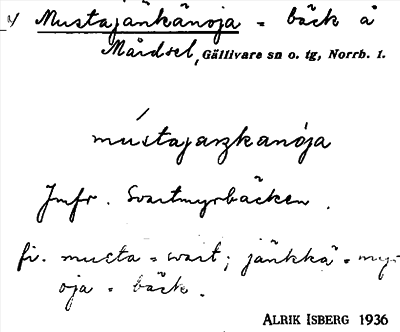 Mustajänkänoja = bäck å
Mårdsel, Gällivare sn o. tg, Norrb. l.
mústajaŋkanòja
Jmfr. Svartmyrbäcken.
fi. musta = svart; jänkkä = myr
oja = bäck.
ALRIK ISBERG 1936